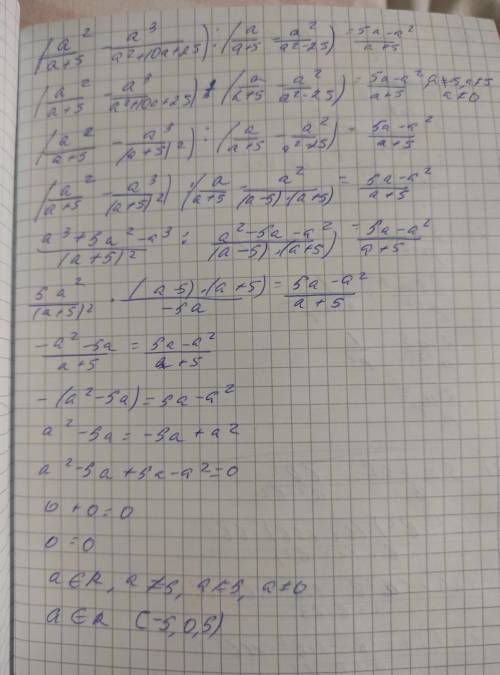 (a²/(a+5) - a³/(a²+10a+25)) : (a/(a+5) - a²/(a²-25)) = (5a-a²)/(a+5)
(a²/(a+5) - a³/(a²+10a+25)) : (a/(a+5) - a²/(a²-25)) = (5a-a²)/(a+5), a≠-5, a≠5 a≠0
(a²/(a+5) - a³/(a+5)²) : (a/(a+5) - a²/(a²-25)) = (5a-a²)/(a+5)
(a²/(a+5) - a³/(a+5)²) : (a/(a+5) - a²/((a-5)·(a+5))) = (5a-a²)/(a+5)
(a³+5a²-a³)/(a+5)² : (a²-5a-a²)/((a-5)·(a+5)) = (5a-a²)/(a+5)
5a²/(a+5)² · ((a-5)·(a+5))/(-5a) = (5a-a²)/(a+5)
(-a²-5a)/(a+5) = (5a-a²)/(a+5)
-(a²-5a)=5a-a²
a²-5a=-5a+a²
a²-5a+5a-a²=0
0+0=0
0=0
a∈R, a≠5, a≠5, a≠0
a∈R (-5,0,5)